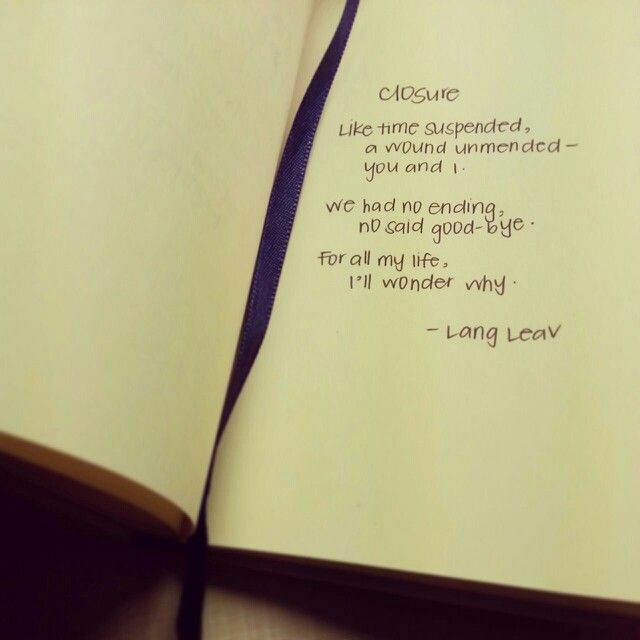 closure
Like time suspended,
a wound unmended-
you and I.
we had no ending,
no said good-bye.
For all my life,
I'll wonder why.
- Lang Leav